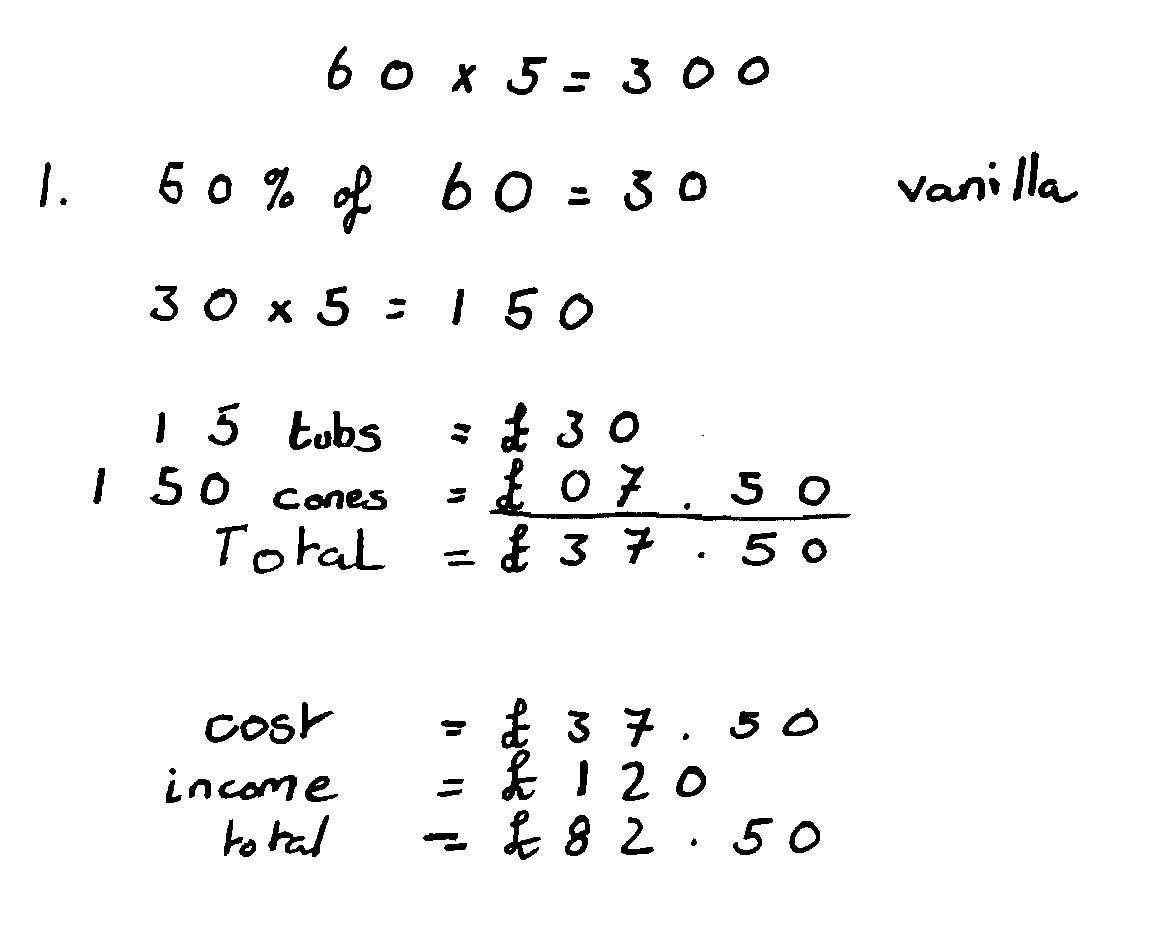 60 x 5 = 300
1. 50% of 60 = 30 vanilla
30 x 5 = 150
15 tubs = £30
150 cones = £07.50
Total = £37.50
cost = £37.50
income = £120
total = £82.50